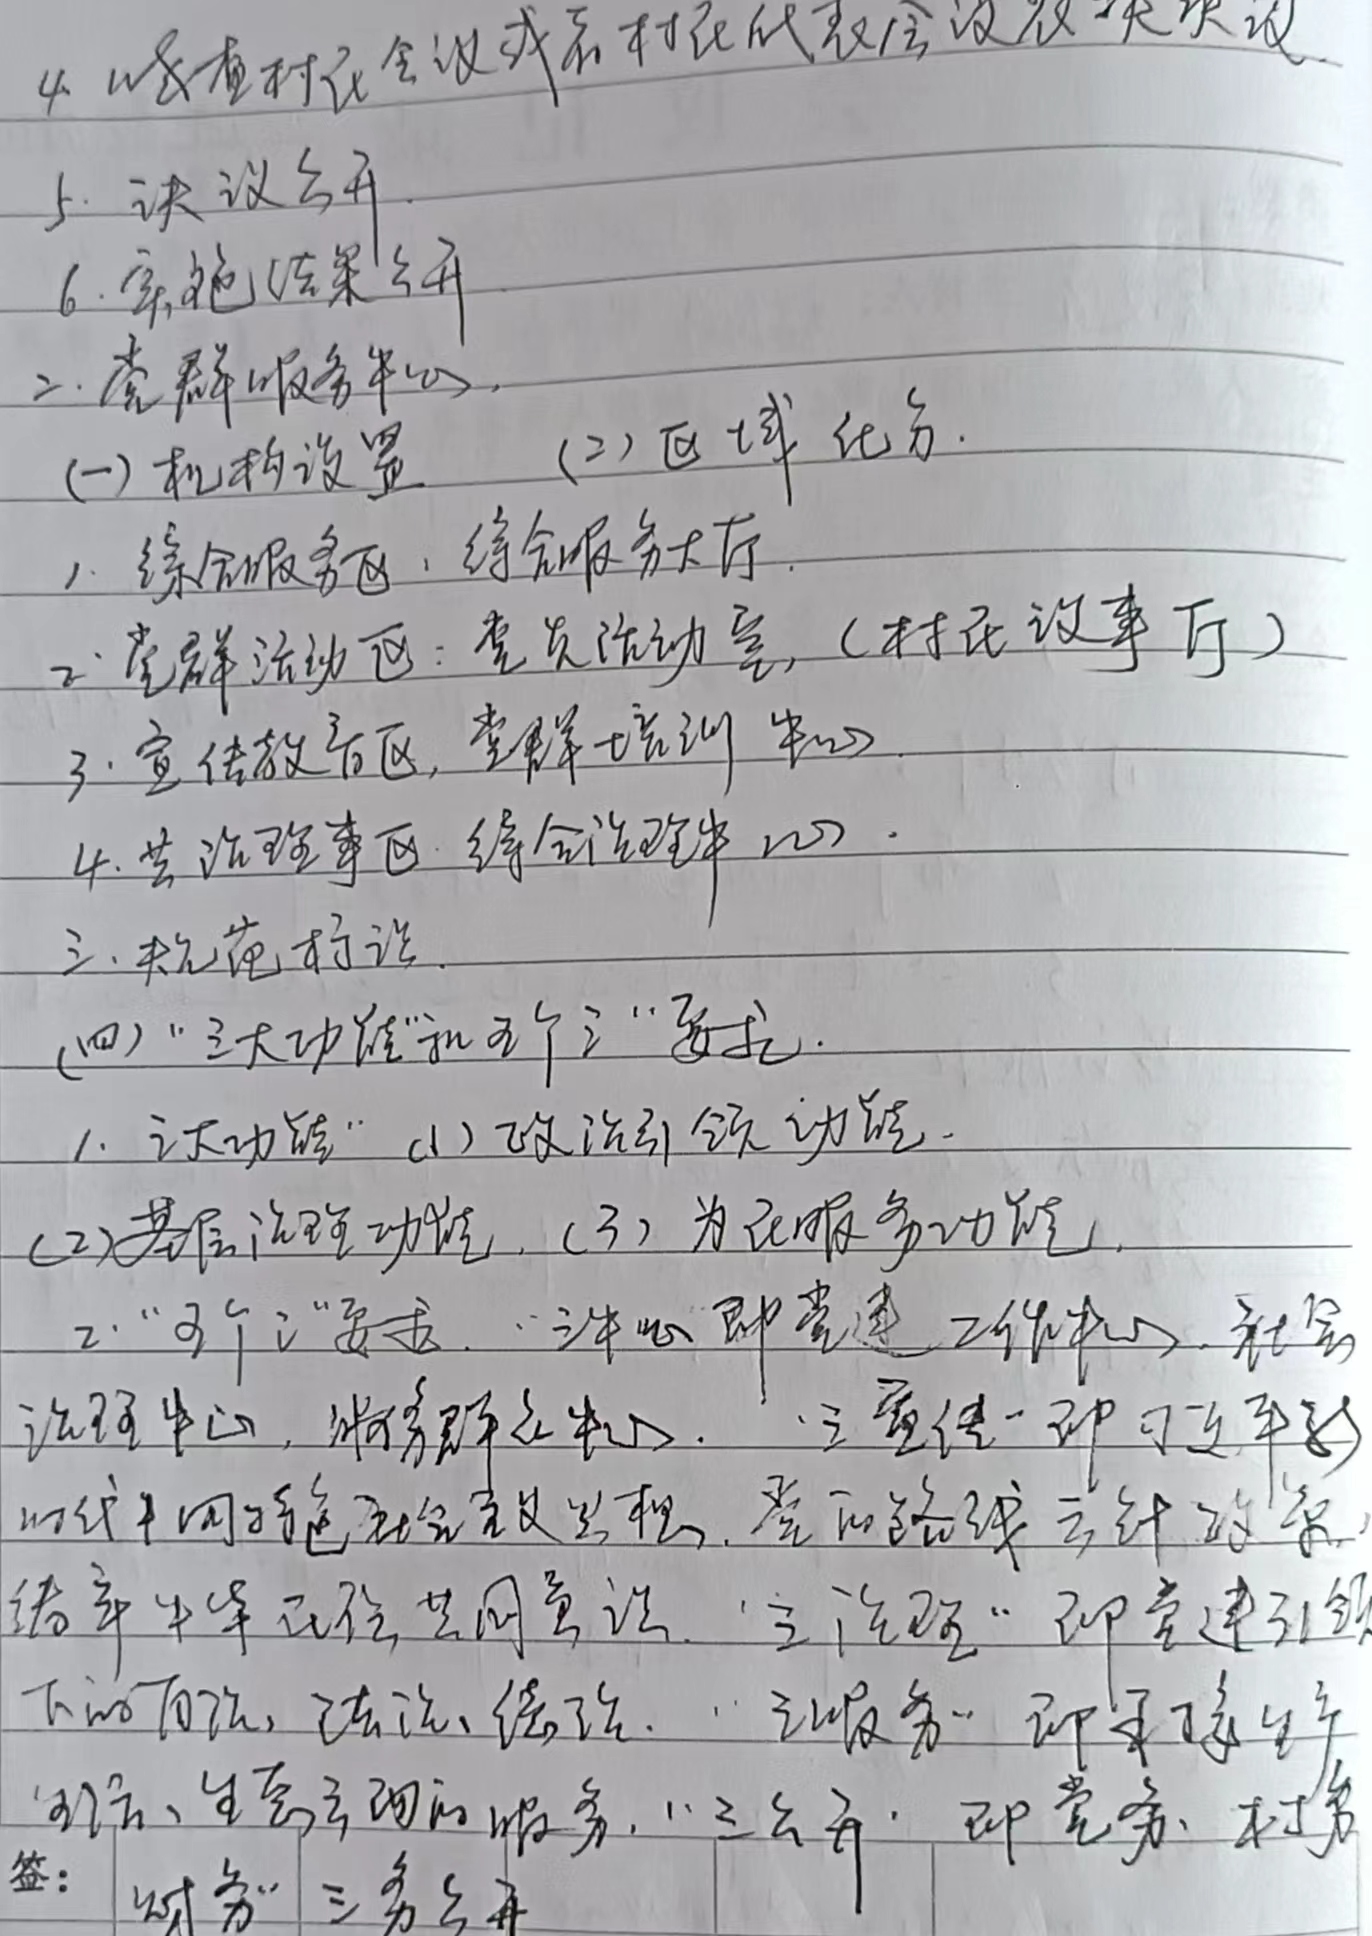 4. 嘎查村民会议或者村民代表会议表决决议
5. 决议公开.
6. 实施结果公开
二. 党群服务中心.
(一) 机构设置 (二) 区域化分.
1. 综合服务区, 综合服务大厅.
2. 党群活动区: 党员活动室, (村民议事厅)
3. 宣传教育区, 党群培训中心.
4. 共治理事区. 综合治理中心.
三. 规范标识.
(四) "三大功能"和五个三"要求.
1. 三大功能" (1) 政治引领功能.
(2) 基层治理功能. (3) 为民服务功能.
2. "五个三"要求. "三中心"即党建工作中心. 社会
治理中心, 服务群众中心. "三宣传"即习近平新
时代中国特色社会主义思想. 党的路线方针政策,
铸牢中华民族共同意识. "三治理"即党建引领
下的自治, 法治、德治. "三服务"即承接生产
生活、生态方面的服务. "三公开"即党务、村务
签: 财务"三务公开